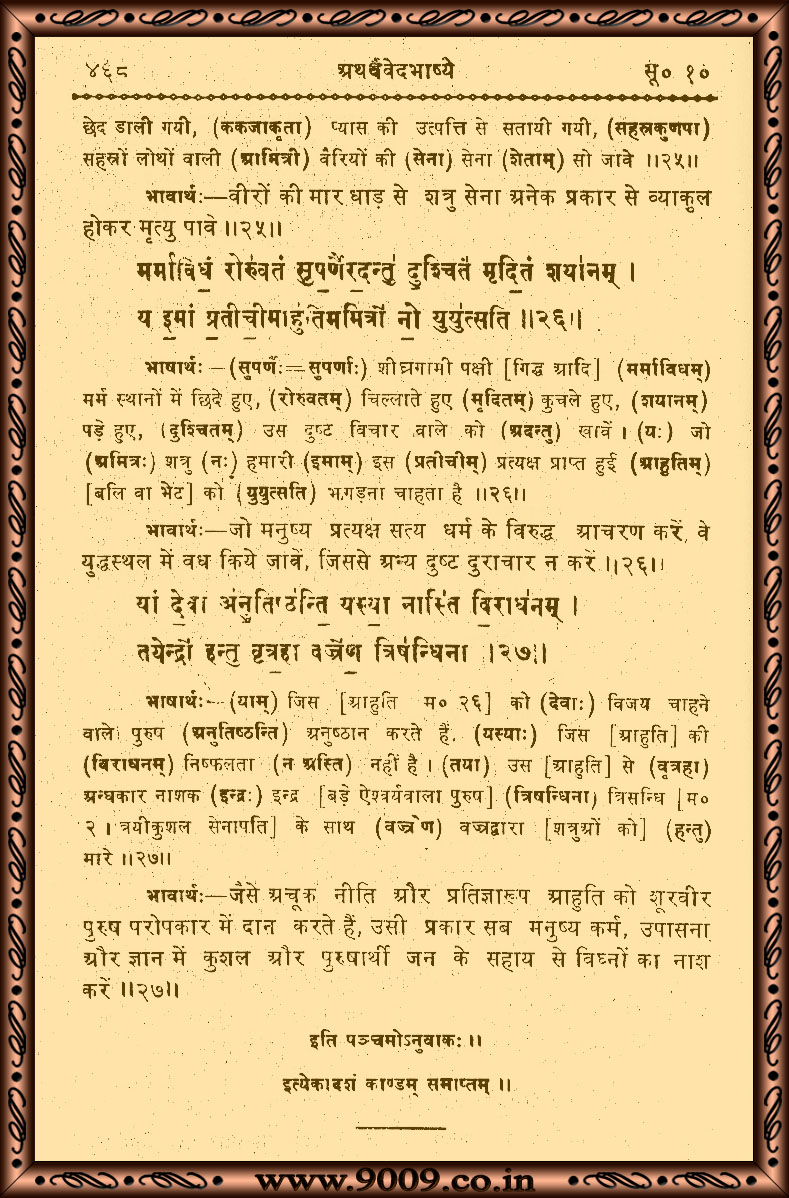 ४६८ अथर्ववेदभाष्ये सू० १०
छेद डाली गयी, (ककजाकृता) प्यास की उत्पत्ति से सतायी गयी, (सहस्रकुणपा)
सहस्रों लोथों वाली (आमित्री) वैरियों की (सेना) सेना (शेताम्) सो जावे ।।२५।।
भावार्थः—वीरों की मार धाड़ से शत्रु सेना अनेक प्रकार से व्याकुल
होकर मृत्यु पावे ।।२५।।
मर्माविधं॒ रोरु॑वतं सुप॒र्णैर॒दन्तु॑ दु॒श्चितं॑ मृदि॒तं शया॑नम् ।
य इ॒मां प्र॒तीची॒माहु॑तिममित्रो॑ नो॒ युयु॑त्सति ।।२६।।
भाषार्थः—(सुपर्णैः=सुपर्णाः) शीघ्रगामी पक्षी [गिद्ध आदि] (मर्माविधम्)
मर्म स्थानों में छिदे हुए, (रोरुवतम्) चिल्लाते हुए (मृदितम्) कुचले हुए, (शयानम्)
पड़े हुए, (दुश्चितम्) उस दुष्ट विचार वाले को (अदन्तु) खावें । (यः) जो
(अमित्रः) शत्रु (नः) हमारी (इमाम्) इस (प्रतीचीम्) प्रत्यक्ष प्राप्त हुई (आहुतिम्)
[बलि वा भेंट] को (युयुत्सति) झगड़ना चाहता है ।।२६।।
भावार्थः—जो मनुष्य प्रत्यक्ष सत्य धर्म के विरुद्ध आचरण करें, वे
युद्धस्थल में वध किये जावें, जिससे अन्य दुष्ट दुराचार न करें ।।२६।।
यां दे॒वा अ॑नु॒तिष्ठ॑न्ति॒ यस्या॒ नास्ति॑ वि॒राध॑नम् ।
तयेन्द्रो॑ हन्तु वृत्र॒हा वज्रे॑ण॒ त्रिष॑न्धिना ।।२७।।
भाषार्थः—(याम्) जिस [आहुति म० २६] को (देवाः) विजय चाहने
वाले पुरुष (अनुतिष्ठन्ति) अनुष्ठान करते हैं, (यस्याः) जिस [आहुति] की
(विराधनम्) निष्फलता (न अस्ति) नहीं है । (तया) उस [आहुति] से (वृत्रहा)
अन्धकार नाशक (इन्द्रः) इन्द्र [बड़े ऐश्वर्यवाला पुरुष] (त्रिषन्धिना) त्रिसन्धि [म०
२ । त्रयीकुशल सेनापति] के साथ (वज्रेण) वज्रद्वारा [शत्रुओं को] (हन्तु)
मारे ।।२७।।
भावार्थः—जैसे अचूक नीति और प्रतिज्ञारूप आहुति को शूरवीर
पुरुष परोपकार में दान करते हैं, उसी प्रकार सब मनुष्य कर्म, उपासना
और ज्ञान में कुशल और पुरुषार्थी जन के सहाय से विघ्नों का नाश
करें ।।२७।।
इति पञ्चमोऽनुवाकः ।।
इत्येकादशं काण्डम् समाप्तम् ।।
www.9009.co.in